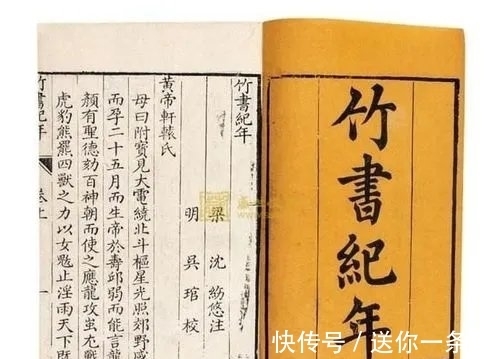 竹書紀年
竹書紀年
梁 沈約悠注
明 吳琯校
黃帝軒轅氏
母曰附寶見大電繞北斗樞星光照郊野感
而孕二十五月而生帝於壽邱弱而能言龍
顏有聖德劾百神朝而使之應龍攻蚩尤戰
虎豹熊羆四獸之力以女魃止淫雨天下既
竹書紀年 卷上 一
快传号 / 送你一条